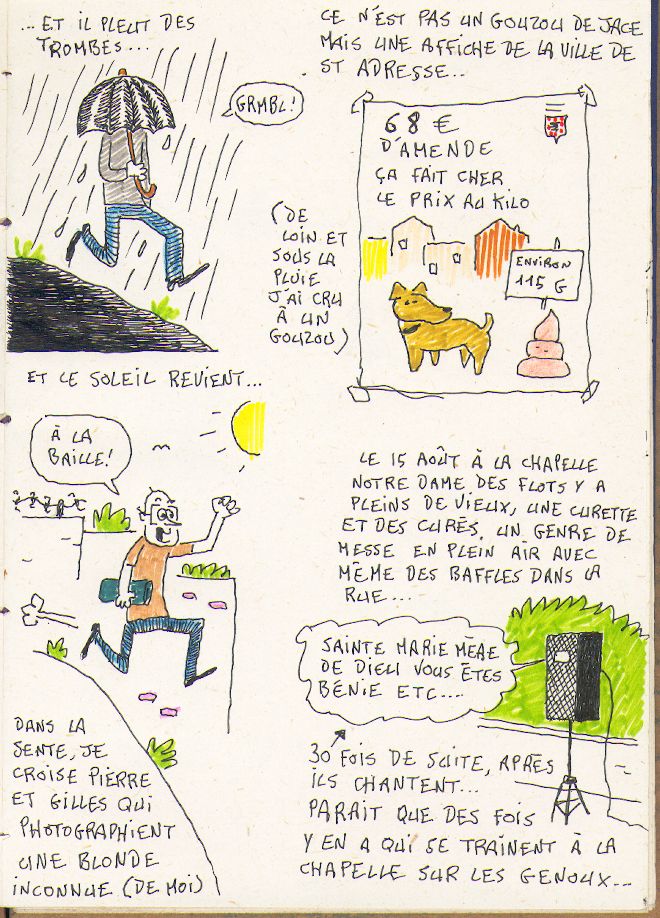 ...ET IL PLEUT DES
TROMBES...
GRMBL!
CE N'EST PAS UN GOUZOU DE JACE
MAIS UNE AFFICHE DE LA VILLE DE
ST ADRESSE...
68 €
D'AMENDE
ÇA FAIT CHER
LE PRIX AU KILO
ENVIRON
115 G
(DE
LOIN ET
SOUS LA
PLUIE
J'AI CRU
À UN
GOUZOU)
ET LE SOLEIL REVIENT...
À LA
BAILLE!
DANS LA
SENTE, JE
CROISE PIERRE
ET GILLES QUI
PHOTOGRAPHIENT
UNE BLONDE
INCONNUE (DE MOI)
LE 15 AOÛT À LA CHAPELLE
NOTRE DAME DES FLOTS Y A
PLEINS DE VIEUX, UNE CURETTE
ET DES CURÉS. UN GENRE DE
MESSE EN PLEIN AIR AVEC
MÊME DES BAFFLES DANS LA
RUE...
SAINTE MARIE MÈRE
DE DIEU VOUS ÊTES
BÉNIE ETC....
30 FOIS DE SUITE, APRÈS
ILS CHANTENT...
PARAIT QUE DES FOIS
Y EN A QUI SE TRAÎNENT À LA
CHAPELLE SUR LES GENOUX...